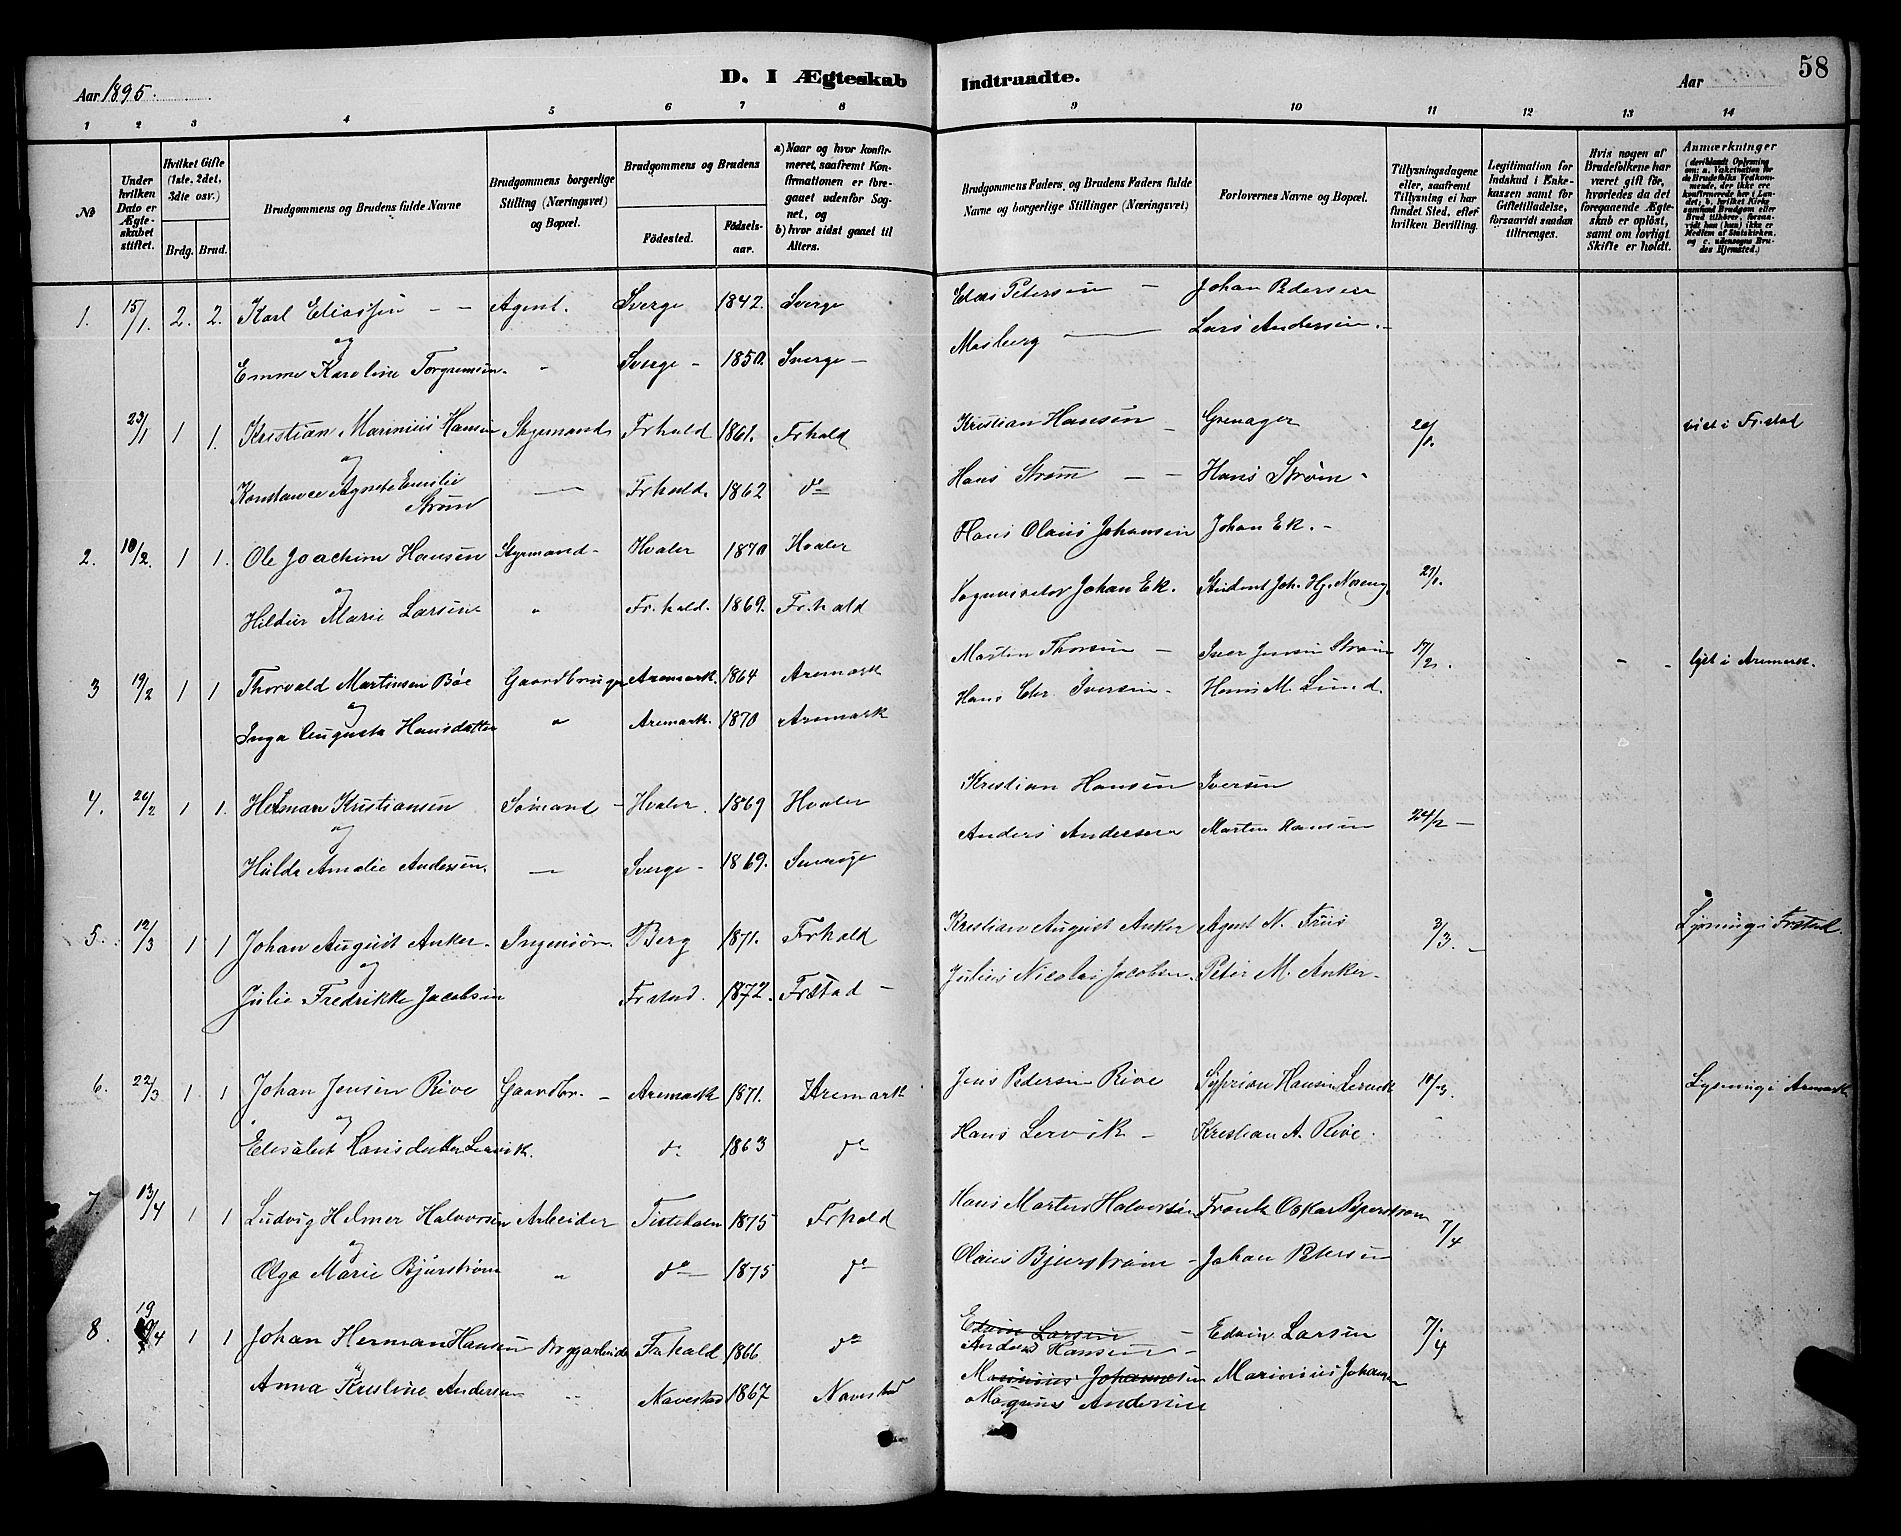 D. I Ægteskab Indtraadte.
58
Aar 1895.
Aar
1 2 3 4 5 6 7 8 9 10 11 12 13 14
No
Under hvilken Dato er Ægteskabet stiftet.
Hvilket Gifte (1ste, 2det, 3die osv.)
Brdg. Brud.
Brudgommens og Brudens fulde Navne
Brudgommens borgerlige Stilling (Næringsvei) og Bopæl.
Brudgommens og Brudens
Födested. Födselsaar.
a) Naar og hvor konfirmeret, saafremt Konfirmationen er foregaaet udenfor Sognet, og
b) hvor sidst gaaet til Alters.
Brudgommens Faders, og Brudens Faders fulde Navne og borgerlige Stillinger (Næringsvei)
Forlovernes Navne og Bopæl.
Tillysningsdagene eller, saafremt Tillysning ei har fundet Sted, efter hvilken Bevilling.
Legitimation for Indskud i Enkekassen samt for Giftetilladelse, forsaavidt saadan tiltrænges.
Hvis nogen af Brudefolkene har været gift før, hvorledes da det foregaaende Ægteskab er opløst, samt om lovligt Skifte er holdt.
Anmærkninger
(deriblandt Oplysning om: a. Vakcination for de Brudefolks Vedkommende, der ikke ere konfirmerede her i Landet; b. hvilket Kirkesamfund Brudgom eller Brud tilhører, forsaavidt han (hun) ikke er Medlem af Statskirken, og c. udensogns Brudes Hjemsted.)
1. 15/1. 2. 2. Karl Eliassen - - Agent. Sverge 1842. Sverge Elias Petersen - Johan Pedersen
og
Emma Karoline Torgersen " Sverge - 1850. Sverge - Mosberg Lars Andersen.
23/1 1 1. Kristian Marinius Hansen Styrmand Frhald 1861. Frhald Kristian Hansen - Grenager 20/1. viet i Fr.stad
og
Konstance Agnete Emilie Strøm Frhald. 1862 do Hans Strøm - - Hans Strøm -
2. 10/2. 1 1. Ole Joachim Hansen Styrmand - Hvaler 1870 Hvaler Hans Olaus Johansen Johan Ek. -
og
Hildur Marie Larsen " Fr.hald. 1869. Fr.hald Johan Ek. Student Joh. Hj. 27/1.
3 19/2 1 1 Thorvald Martinsen Böe Gaardbruger Aremark. 1864 Aremark Martin Thorsen - Iver Jensen Strøm 17/2. lyst i Aremark.
og
Inga Augusta Hansdatter " Aremark. 1870 Aremark Hans Chr. Iversen - Hans M. Lund.
4. 26/2 1 1. Herman Kristiansen Sömand - Hvaler. 1869 Hvaler Kristian Hansen Iversen
og
Hulda Amalie Andersen. Sverge - 1869. Sverige Anders Andersen Martin Hansen 24/2 -
5. 12/3 1 1 Johan August Anker - Ingeniör. Berg 1871. Frhald Kristian August Anker Agent N. Friis 3/3. - Lysning i Frstad.
og
Julie Fredrikke Jacobsen Frstad. 1872. Frstad - Julius Nicolai Jacobsen. Peter M. Anker -
6. 22/3 1. 1 Johan Jensen Rive Gaardbr. - Aremark 1871. Aremark Jens Pedersen Rive Syprian Hansen Lervik 10/3. Lysning i Aremark
og
Elisabet Hansdatter Lervik. do 1863 do Hans Lervik - Kristian A. Rive.
7. 13/4 1 1 Ludvig Helmer Halvorsen Arbeider Tistedalen 1875 Frhald Hans Martin Halvorsen Frantz Oskar Bjurstrøm 7/4
og
Olga Marie Bjurström " do 1875 do Olaus Bjurstrøm - Johan Petersen
8. 19/4 1 1 Johan Herman Hansen Bryggarbeider Frhald 1866 do Edvin Larsen - Edvin Larsen 7/4
Anders Hansen -
&
Anna Kristine Andersen " Navestad 1867 Navestad Marinius Johansen Marinius Johansen
Magnus Andersen